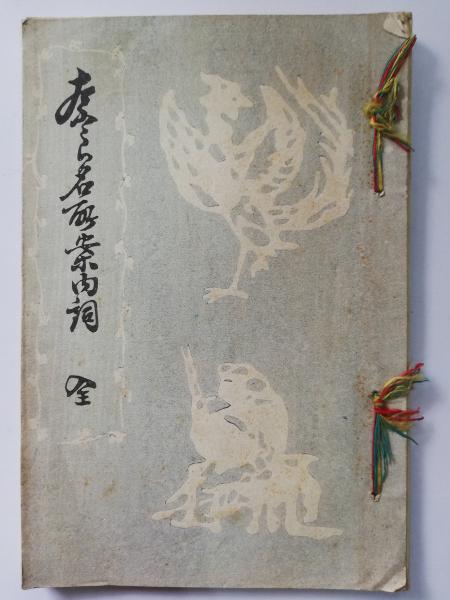 奈良名所案内詞 全